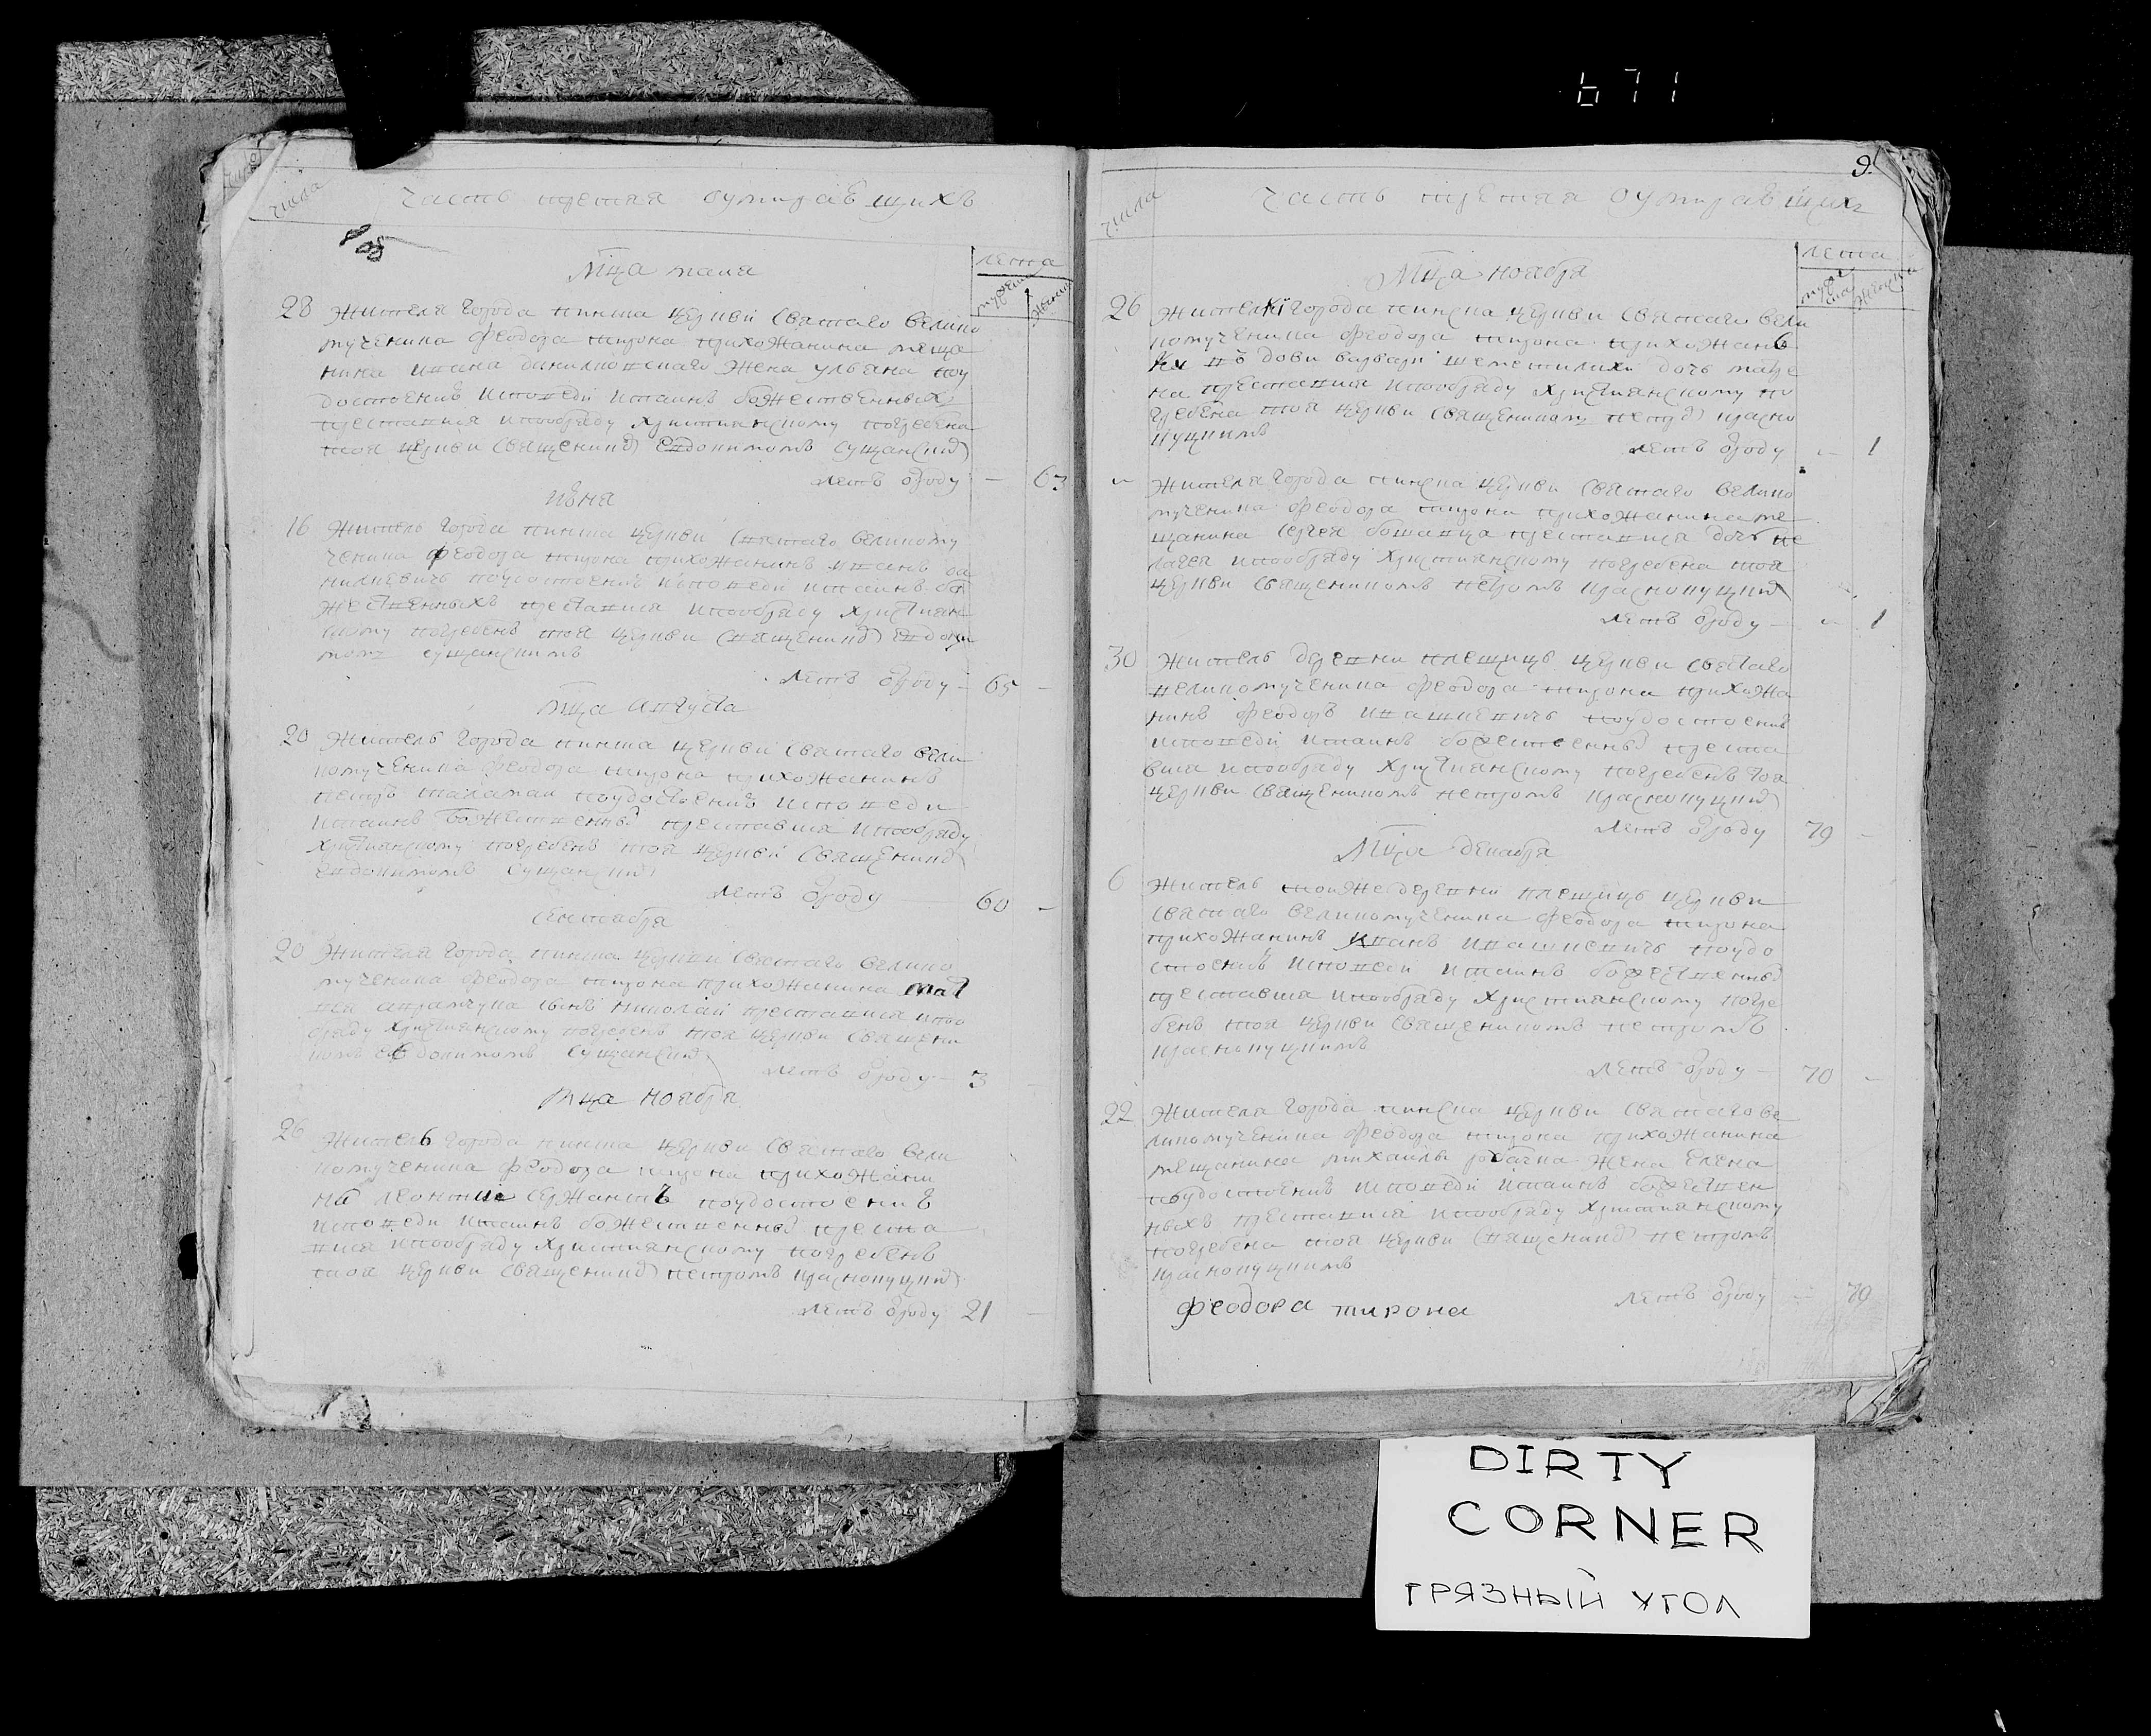 671
числа
Часть третая оумиравщихъ
лета
мужеска
женска
Мца маия
28 Жителя города пинска церкви святаго велико
мученика феодора тирона прихожанина меща
нина ивана данилковскаго жена ульяна поу
достоениѣ исповеди итаинъ божественныхъ
преставися ипообряду християнскому погребена
тоя церкви священико евдокимомъ сущанско
летъ отроду - 63
июня
16 Житель города пинска церкви святаго великому
ченика феодора тирона прихожанинъ иванъ да
нилкевичъ поудостоениѣ исповеди итаинъ бо
жественныхъ преставися ипообряду християн
скому погребенъ тоя церкви священико евдоки
момъ сущанскимъ
летъ отроду - 65 -
Мца августа
20 Житель города пинска церкви святаго вели
комученика феодора тирона прихожанинъ
петръ поудостоениѣ исповеди
итаинъ божественны преставися ипообряду
християнскому погребенъ тоя церкви священико
евдокимомъ сущанско
летъ отроду 60 -
сентября
20 Жителя города пинска церкви святаго велико
мученика феодора тирона прихожанина мат
вея сынъ николай преставися ипоо
бряду християнскому погребенъ тоя церкви священи
комъ евдокимомъ сущанско
летъ отроду - 3 -
Мца ноября
26 Житель города пинска церкви святаго вели
комученика феодора тирона прихожани
нъ леонтие сержантъ поудостоениѣ
исповеди итаинъ божественны преста
вися ипообряду християнскому погребенъ
тоя церкви священико петромъ краснопуцко
летъ отроду 21 -
9.
числа
Часть третая оумиравщихъ
лета
мужеска
женска
Мца ноября
26 Жителкі города пинска церкви святаго вели
комученика феодора тирона прихожанъ
ки въдови варвари дочь
на преставися ипообряду християнскому по
гребена тоя церкви священикомъ петро красно
пуцкимъ
летъ отроду - 1
Жителя города пинска церкви святаго велико
мученика феодора тирона прихожанина ме
щанина сергея преставися дочь пе
лагея ипообряду християнскому погребена тоя
церкви священикомъ петромъ краснопуцко
летъ отроду - 1
30 Житель деревни плещицъ церкви святаго
великомученика феодора тирона прихожа
нинъ феодоръ ивашкевичъ поудостоениѣ
исповеди итаинъ божественны преста
вися ипообряду християнскому погребенъ тоя
церкви священикомъ петромъ краснопуцко
летъ отроду 79 -
Мца декабря
6 Житель тоиже деревни плещицъ церкви
святаго великомученика феодора тирона
прихожанинъ иванъ ивашкевичъ поудо
стоениѣ исповеди итаинъ божественны
преставися ипообряду християнскому погре
бенъ тоя церкви священикомъ петромъ
краснопуцкимъ
летъ отроду - 70 -
22 Жителя города пинска церкви святаго ве
ликомученика феодора тирона прихожанина
мещанина михаила жена елена
поудостоениѣ исповеди итаинъ божествен
ныхъ преставися ипообряду християнскому
погребена тоя церкви священико петромъ
краснопуцкимъ
летъ отроду - 70
феодора тирона
DIRTY
CORNER
ГРЯЗНЫЙ УГОЛ